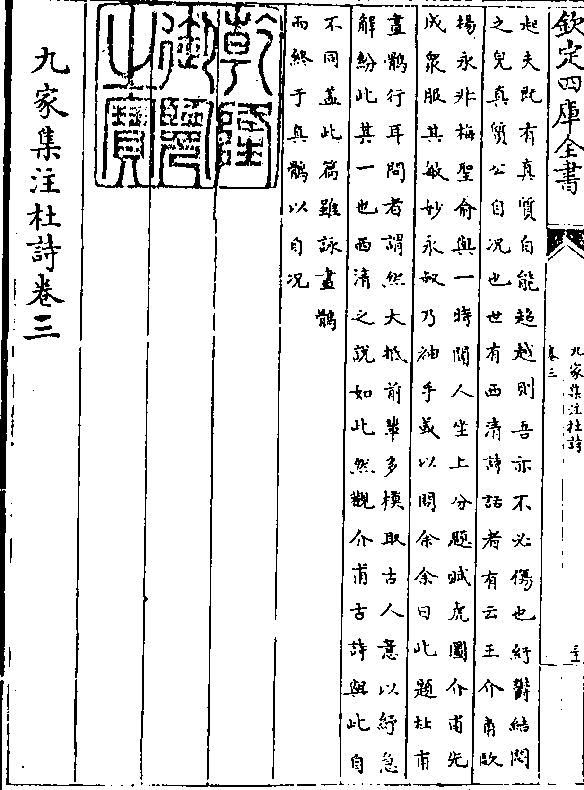 欽定四庫全書
九家集注杜詩
卷三
起夫既有真質自能超越則吾亦不必傷也紓鬱結悶
之皃真質公自况也世有西清詩話者有云王介甫歐
楊永非梅聖俞與一時聞人坐上分題賦虎圖介甫先
成衆服其敏妙永叔乃袖手或以問余余曰此題杜甫
畫鶻行耳問者謂然大抵前輩多模取古人意以紓急
解紛此其一也西清之說如此然觀介甫古詩與此自
不同蓋此篇雖詠畫鶻
而終于真鶻以自况
乾隆
御覽
之寶
九家集注杜詩卷三